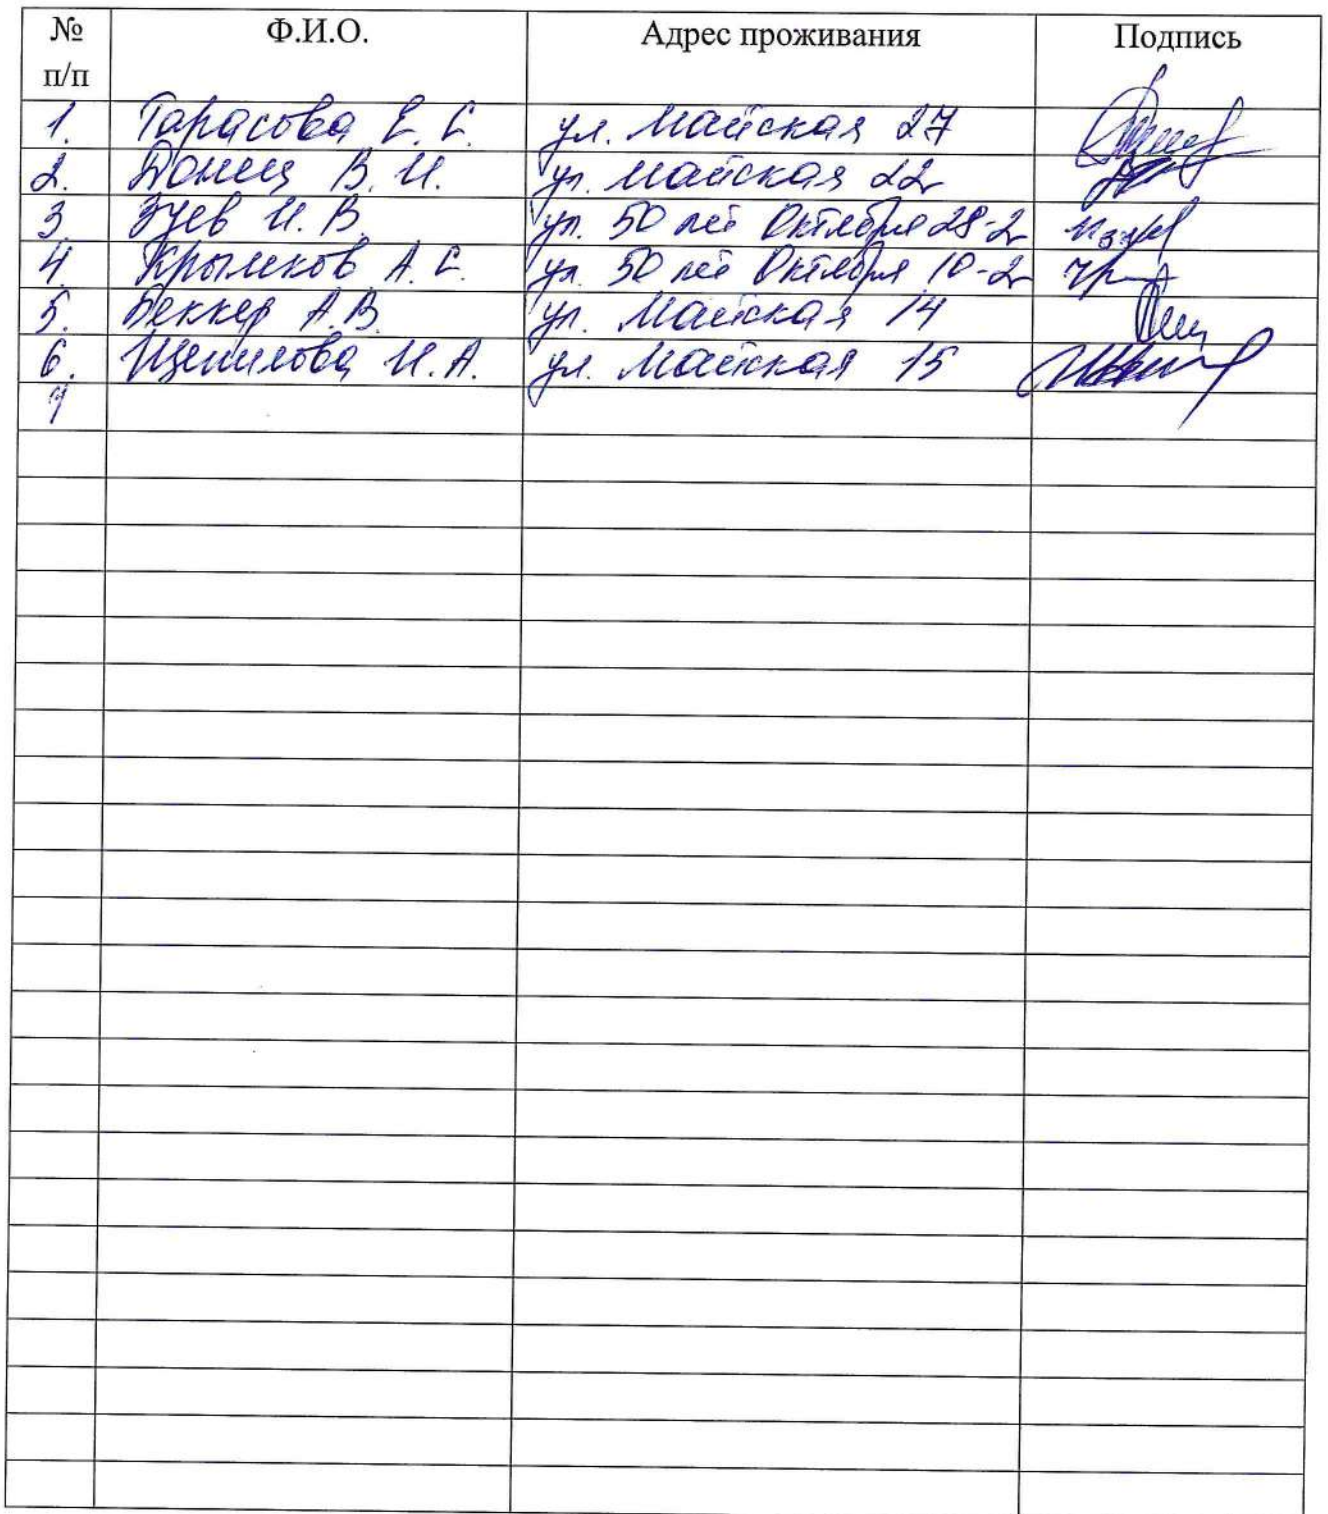 № п/п Ф.И.О. Адрес проживания Подпись
1. Тарасова Е. С. ул. Майская 27
2. Донец В. И. ул. Майская 22
3. Зуев И. В. ул. 50 лет Октября 28-2
4. Крымков А. С. ул. 50 лет Октября 10-2
5. Беккер А. В. ул. Майская 14
6. Щепилова И. А. ул. Майская 15
7